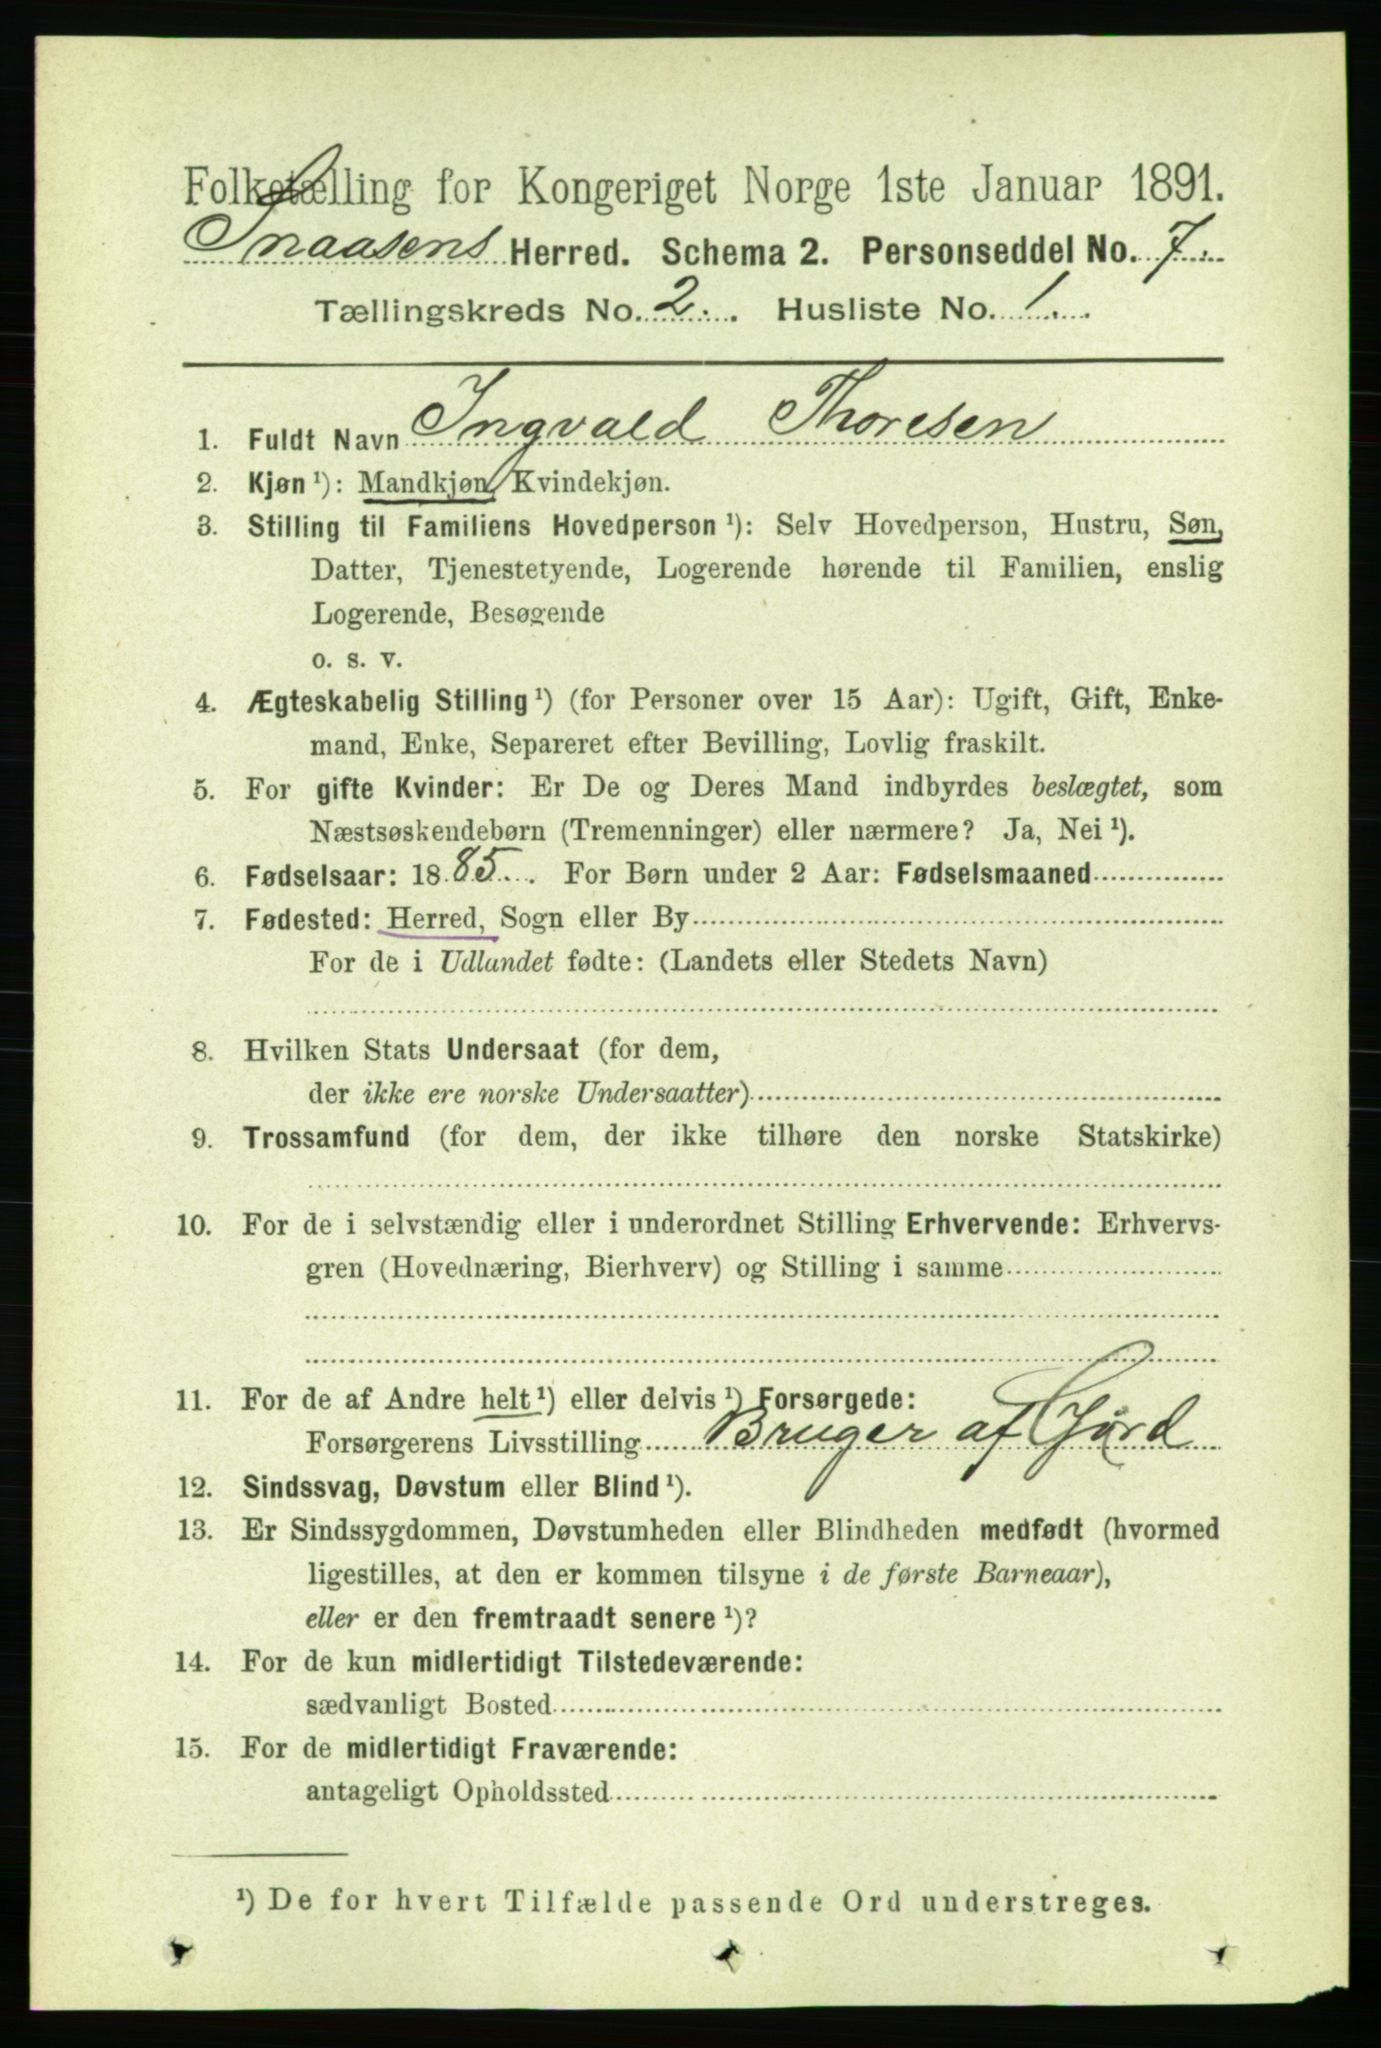 Folketælling for Kongeriget Norge 1ste Januar 1891.
Snaasens Herred. Schema 2. Personseddel No. 7.
Tællingskreds No. 2. Husliste No. 1.
1. Fuldt Navn Ingvald Thoresen
2. Kjøn ¹): Mandkjøn, Kvindekjøn.
3. Stilling til Familiens Hovedperson ¹): Selv Hovedperson, Hustru, Søn,
Datter, Tjenestetyende, Logerende hørende til Familien, enslig
Logerende, Besøgende
o. s. v.
4. Ægteskabelig Stilling ¹) (for Personer over 15 Aar): Ugift, Gift, Enke-
mand, Enke, Separeret efter Bevilling, Lovlig fraskilt.
5. For gifte Kvinder: Er De og Deres Mand indbyrdes beslægtet, som
Næstsøskendebørn (Tremenninger) eller nærmere? Ja, Nei ¹).
6. Fødselsaar: 1885. For Børn under 2 Aar: Fødselsmaaned
7. Fødested: Herred, Sogn eller By
For de i Udlandet fødte: (Landets eller Stedets Navn)
8. Hvilken Stats Undersaat (for dem,
der ikke ere norske Undersaatter)
9. Trossamfund (for dem, der ikke tilhøre den norske Statskirke)
10. For de i selvstændig eller i underordnet Stilling Erhvervende: Erhvervs-
gren (Hovednæring, Bierhverv) og Stilling i samme
11. For de af Andre helt ¹) eller delvis ¹) Forsørgede:
Forsørgerens Livsstilling Bruger af Gård
12. Sindssvag, Døvstum eller Blind ¹).
13. Er Sindssygdommen, Døvstumheden eller Blindheden medfødt (hvormed
ligestilles, at den er kommen tilsyne i de første Barneaar),
eller er den fremtraadt senere ¹)?
14. For de kun midlertidigt Tilstedeværende:
sædvanligt Bosted
15. For de midlertidigt Fraværende:
antageligt Opholdssted
¹) De for hvert Tilfælde passende Ord understreges.